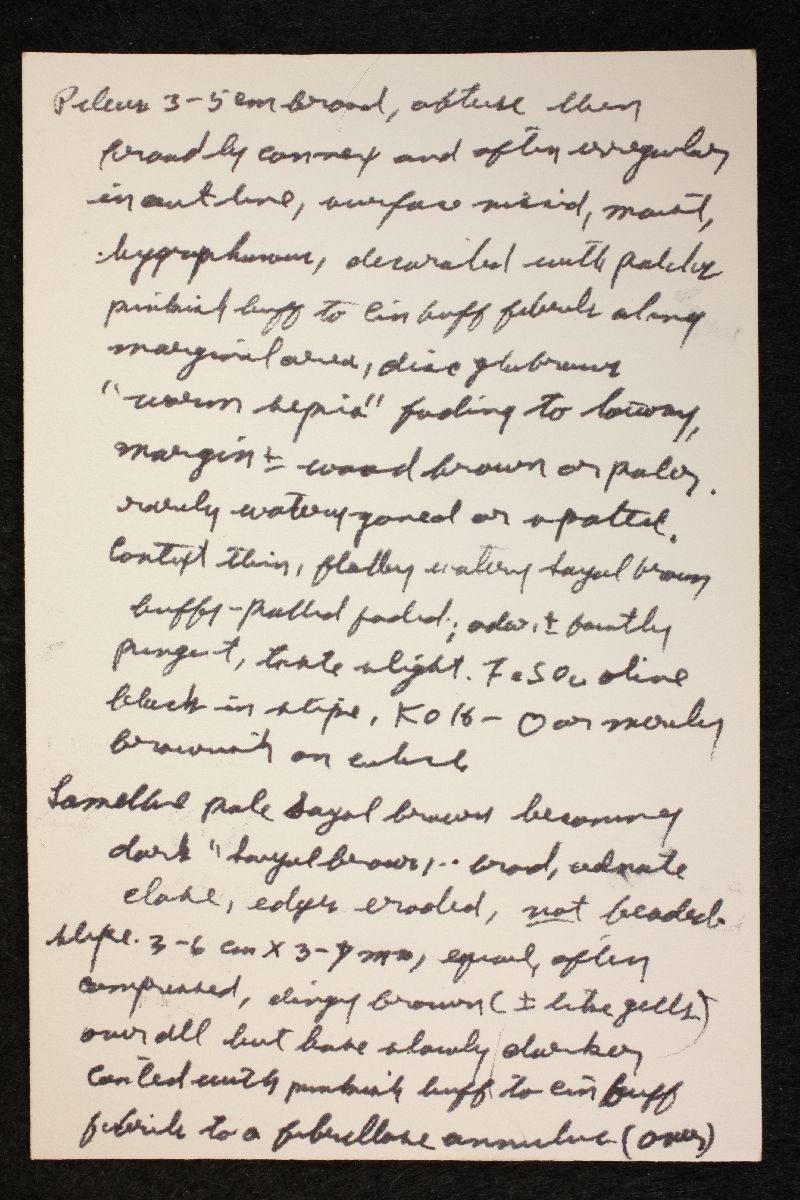 Pileus 3-5 cm broad, obtuse then
broadly convex and often irregular
in outline, surface viscid, moist,
hygrophanous, decorated with patches
pinkish buff to cin buff fibrils along
marginal area, disc glabrous
"warm sepia" fading to tawny,
margin ± wood brown or paler.
rarely watery-zoned or spotted.
Context thin, flabby watery sayal brown
buffy-pallid faded; odor ± faintly
pungent, taste slight. FeSO4 olive
black in stipe, KOH - O or merely
brownish on cuticle
Lamellae pale sayal brown becoming
dark "sayal brown," broad, adnate
close, edges eroded, not beaded
stipe. 3-6 cm x 3-7 mm, equal, often
compressed, dingy brown (± like gills)
over all but base slowly darker
coated with pinkish buff to cin buff
fibrils to a fibrillose annulus (over)